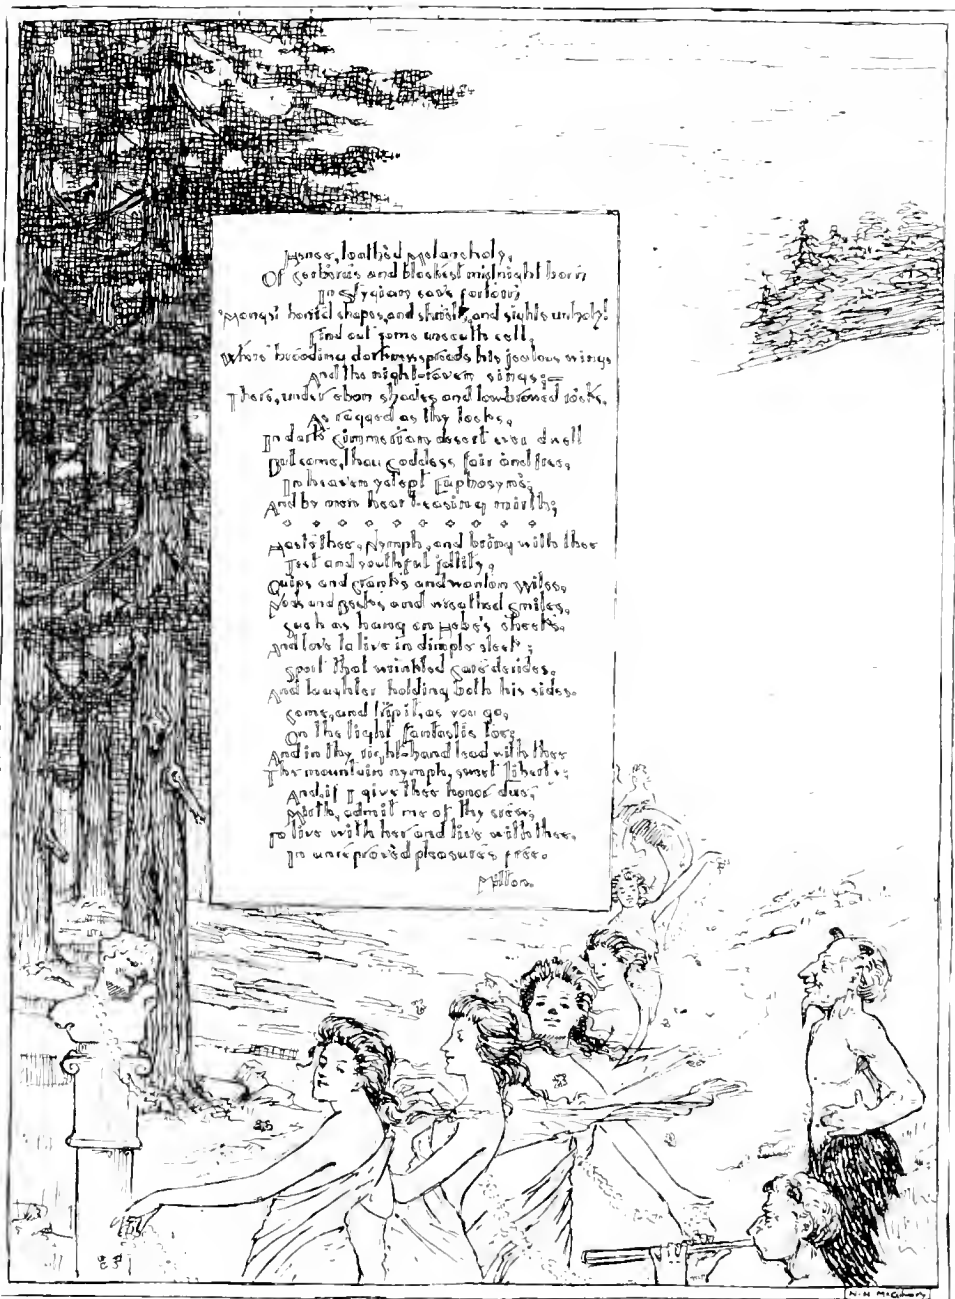 Hence, loathed Melancholy,
Of Cerberus and blackest midnight born
In Stygian cave forlorn
'Mongst horrid shapes, and shrieks, and sights unholy!
Find out some uncouth cell,
Where brooding darkness spreads his jealous wings
And the night-raven sings;—
There, under ebon shades and low-browed rocks,
As ragged as thy locks,
In dark Cimmerian desert ever dwell
But come, thou Goddess fair and free,
In heaven yclept Euphosyne;
And by men heart-easing mirth;
Haste thee, Nymph, and bring with thee
Jest and youthful jollity,
Quips and cranks and wanton wiles,
Nods and Becks, and wreathed Smiles,
Such as hang on Hebe's cheeks,
And love to live in dimple sleek;
Sport that wrinkled Care derides,
And laughter holding both his sides.
Come, and trip it, as you go,
On the light fantastic toe;
And in thy right-hand lead with thee
The mountain nymph, sweet liberty;
And, if I give thee honor due,
Mirth, admit me of thy crew,
To live with her and live with thee,
In unreproved pleasures free.
Milton.